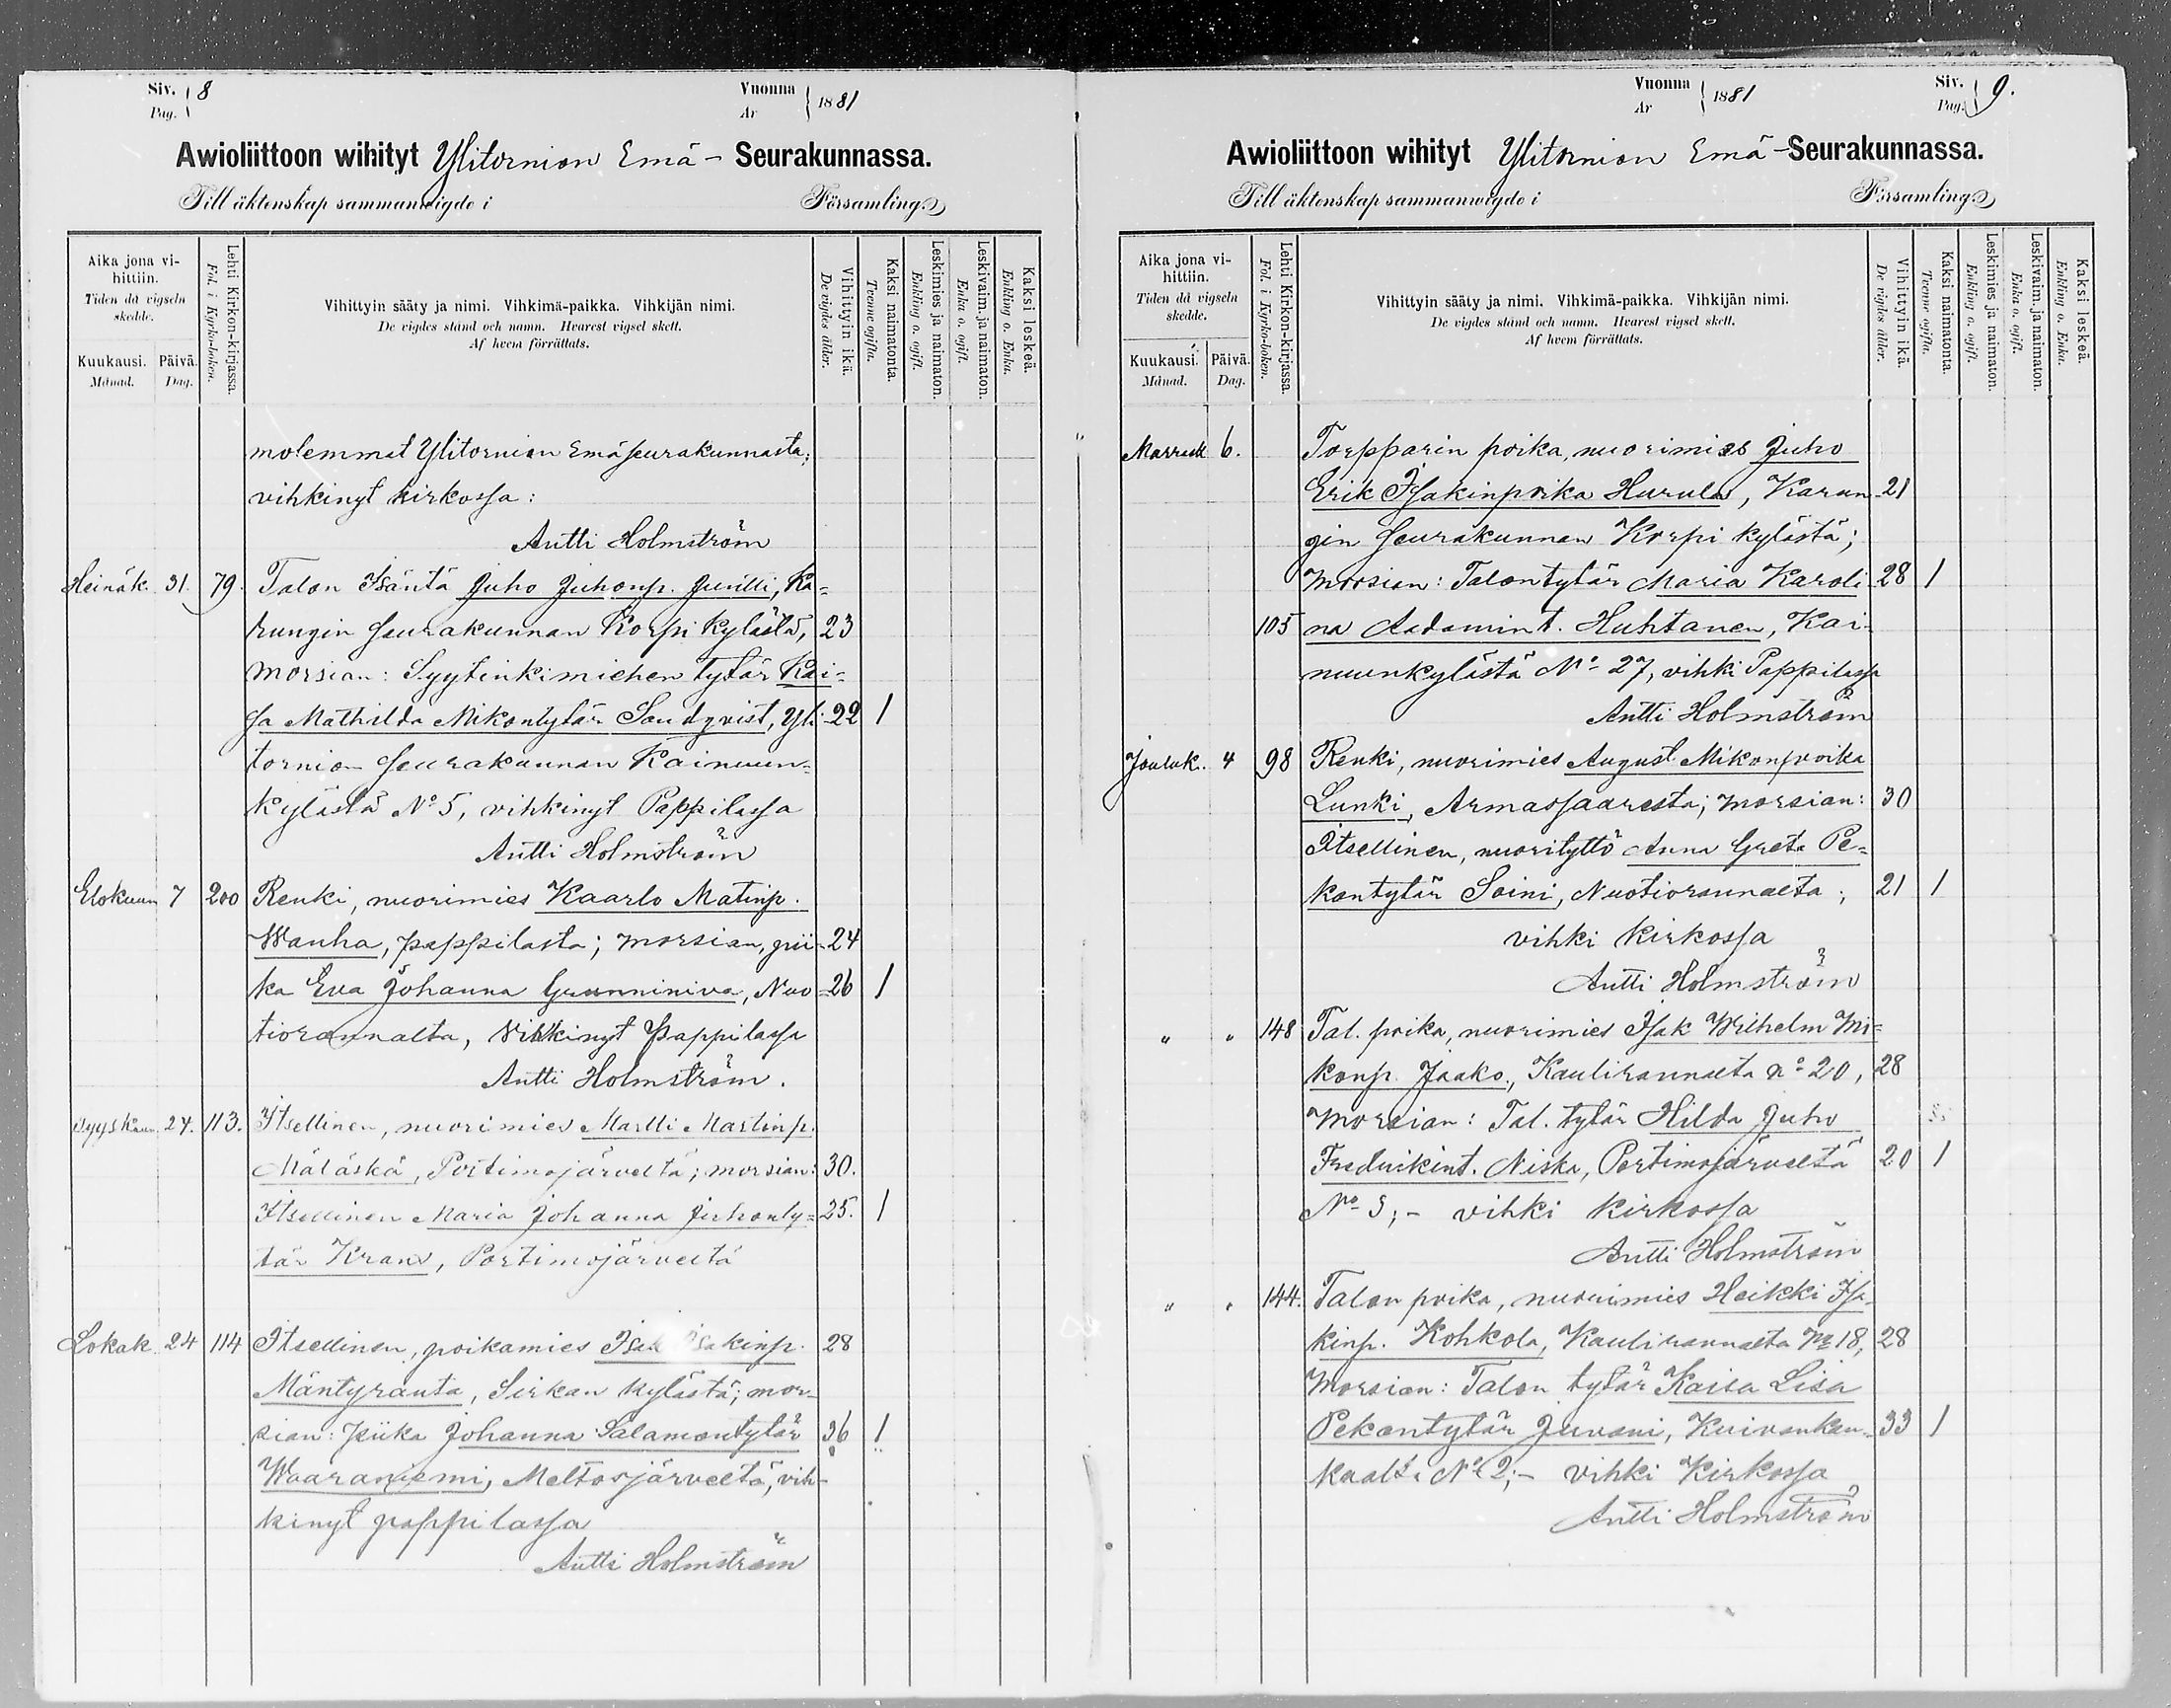 Siv. 8
Pag.
Vuonna 1881
År
Awioliittoon wihityt Ylitornion Emä- Seurakunnassa.
Till äktenskap sammanvigde i Församling.
Aika jona vihittiin.
Tiden då vigseln skedde.
Kuukausi. Månad.
Päivä. Dag.
Lehti Kirkon-kirjassa.
Fol. i Kyrko-boken.
Vihittyin sääty ja nimi. Vihkimä-paikka. Vihkijän nimi.
De vigdes stånd och namn. Hvarest vigsel skett.
Af hvem förrättats.
Vihittyin ikä. De vigdes ålder.
Kaksi naimatonta. Tvenne ogifta.
Leskimies ja naimaton. Enkling o. ogift.
Leskivaim. ja naimaton. Enka o. ogift.
Kaksi leskeä. Enkling o. Enka.
molemmat Ylitornion Emäseurakunnasta;
vihkinyt kirkossa:
Antti Holmström
Heinäk. 31. 79. Talon Isäntä Juho Juhonp. Juntti, Ka=
rungin seurakunnan Korpi kylästä, 23
morsian: Syytinkimiehen tytär Kai=
sa Mathilda Mikontytär Sandqvist, Yli- 22 1
tornion seurakunnan Kainuun=
kylästä No 5, vihkinyt Pappilassa
Antti Holmström
Elokuun 7 200 Renki, nuorimies Kaarlo Matinp.
Wanha, pappilasta; morsian, pii- 24
ka Eva Johanna Gunniniva, Nuo= 26 1
tiorannalta, Vihkinyt Pappilassa
Antti Holmström.
Syyskuun 24. 113. Itsellinen, nuorimies Martti Martinp.
Mäläskä, Portimojärveltä; morsian: 30.
Itsellinen Maria Johanna Juhonty= 25. 1
tär Krans, Portimojärveltä
Lokak. 24 114 Itsellinen, poikamies Isak Isakinp. 28
Mäntyranta, Sirkan kylästä; mor-
sian: Piika Johanna Salamontytär 36 1
Waaraniemi, Meltosjärveltä, vih-
kinyt pappilassa
Antti Holmström
Vuonna 1881
År
Siv. 9.
Pag.
Awioliittoon wihityt Ylitornion Emä-Seurakunnassa.
Till äktenskap sammanvigde i Församling.
Aika jona vihittiin.
Tiden då vigseln skedde.
Kuukausi. Månad.
Päivä. Dag.
Lehti Kirkon-kirjassa.
Fol. i Kyrko-boken.
Vihittyin sääty ja nimi. Vihkimä-paikka. Vihkijän nimi.
De vigdes stånd och namn. Hvarest vigsel skett.
Af hvem förrättats.
Vihittyin ikä. De vigdes ålder.
Kaksi naimatonta. Tvenne ogifta.
Leskimies ja naimaton. Enkling o. ogift.
Leskivaim. ja naimaton. Enka o. ogift.
Kaksi leskeä. Enkling o. Enka.
Marrask 6. Torpparin poika, nuorimies Juho
Erik Isakinpoika Hurula, Karun- 21
gin seurakunnan Korpi kylästä;
morsian: Talontytär Maria Karoli 28 1
105 na Aadamint. Huhtanen, Kai-
nuunkylästä No 27, vihki Pappilassa
Antti Holmström
Jouluk. 4 98 Renki, nuorimies August Mikonpoika
Lunki, Armassaaresta; morsian: 30
Itsellinen, nuorityttö Anna Greta Pe=
kantytär Soini, Nuotiorannalta; 21 1
vihki kirkossa
Antti Holmström
" " 148 Tal. poika, nuorimies Isak Wilhelm Mi=
konp. Jaako., Kaulirannalta No 20, 28
morsian: Tal. tytär Hilda Juho
Fredrikint. Niska, Portimojärveltä 20 1
No 5;- vihki kirkossa
Antti Holmström
" " 144. Talon poika, nuorimies Heikki Isa-
kinp. Kohkola, Kaulirannalta No 18, 28
Morsian: Talon tytär Kaisa Lisa
Pekantytär Juvani, Kuivankan- 33 1
kaalta No 2;- vihki Kirkossa
Antti Holmström